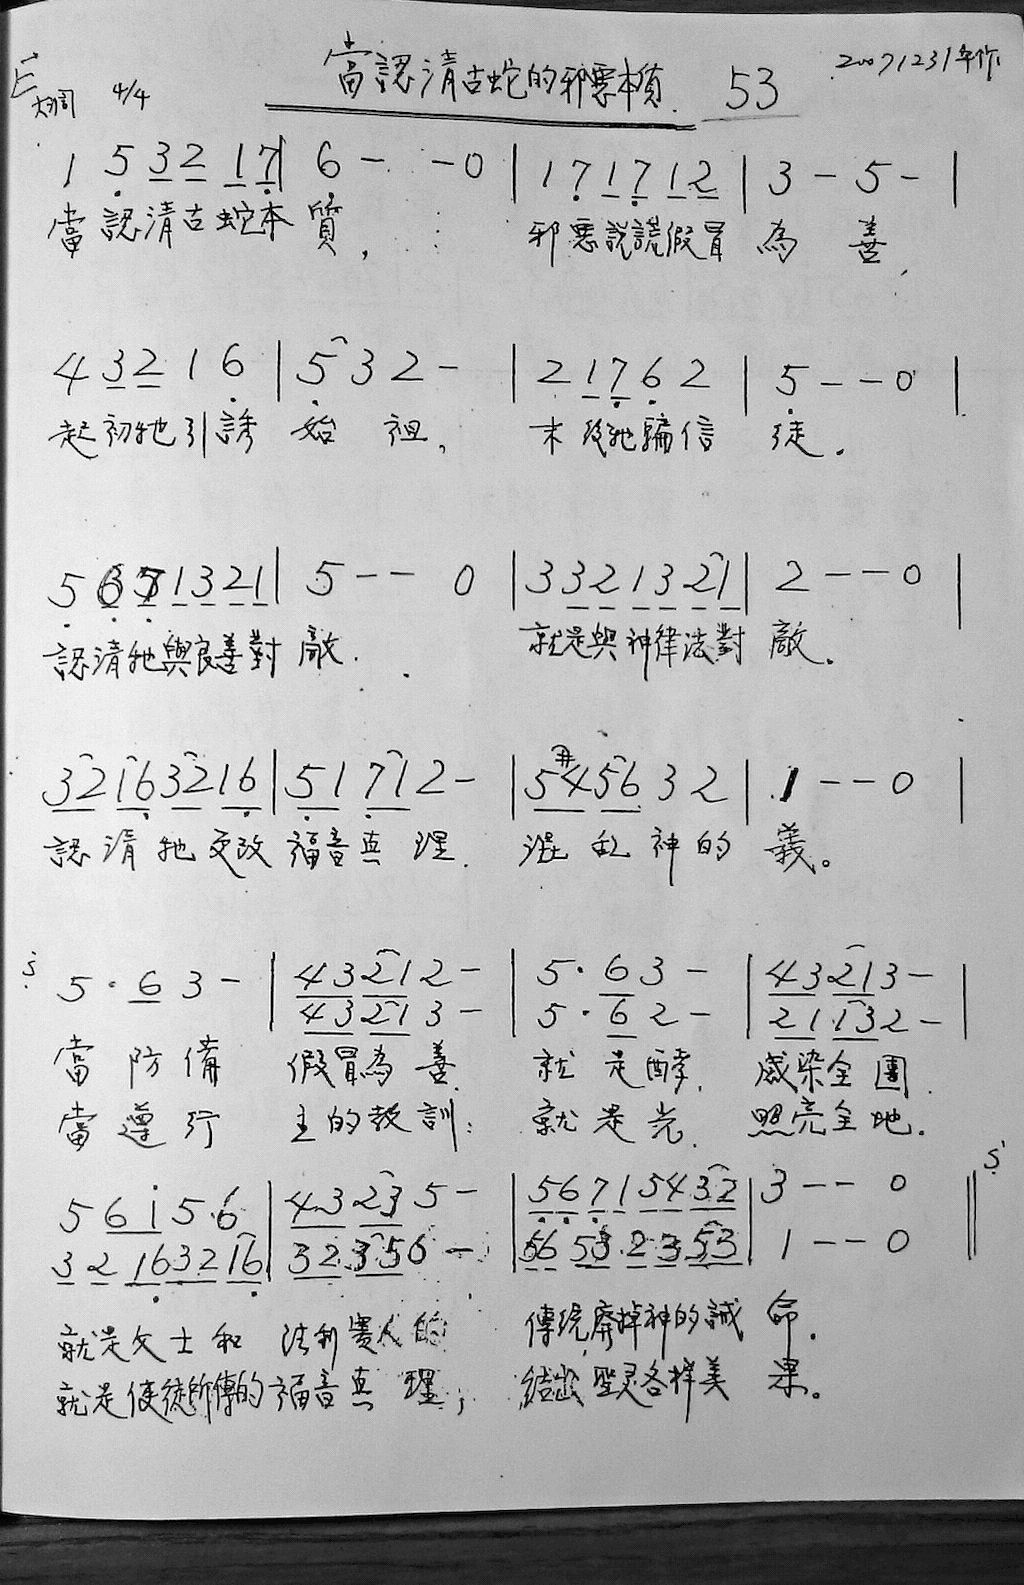 當認清古蛇的邪惡本質 53 20071231年作
E大調 4/4
1 5 3 2 1 7 | 6 - - 0 | 1 7 1 7 1 2 | 3 - 5 - |
當認清古蛇本質, 邪惡說謊假冒為善,
4 3 2 1 6 | 5 3 2 - | 2 1 7 6 2 | 5 - - 0 |
起初牠引誘始祖, 末後牠騙信徒.
5 6 7 1 3 2 1 | 5 - - 0 | 3 3 2 1 3 2 1 | 2 - - 0 |
認清牠與良善對敵. 就是與神律法對敵.
3 2 1 6 3 2 1 6 | 5 1 7 1 2 - | 5 #4 5 6 3 2 | 1 - - 0 |
認清牠更改福音真理. 混乱神的義。
5 · 6 3 - | 4 3 2 1 2 - | 5 · 6 3 - | 4 3 2 1 3 - |
4 3 2 1 3 - | 5 · 6 2 - | 2 1 1 3 2 - |
當防備假冒為善. 就是酵, 感染全團.
當遵行主的教訓; 就是光. 照亮全地.
5 6 i 5 · 6 | 4 3 2 3 5 - | 5 6 7 1 5 4 3 2 | 3 - - 0
3 2 1 6 3 2 1 6 | 3 2 3 5 6 - | 5 6 5 3 2 3 5 3 | 1 - - 0
就是文士和法利賽人的傳統, 廢掉神的誡命.
就是使徒所傳的福音真理, 結出聖灵各样美果。